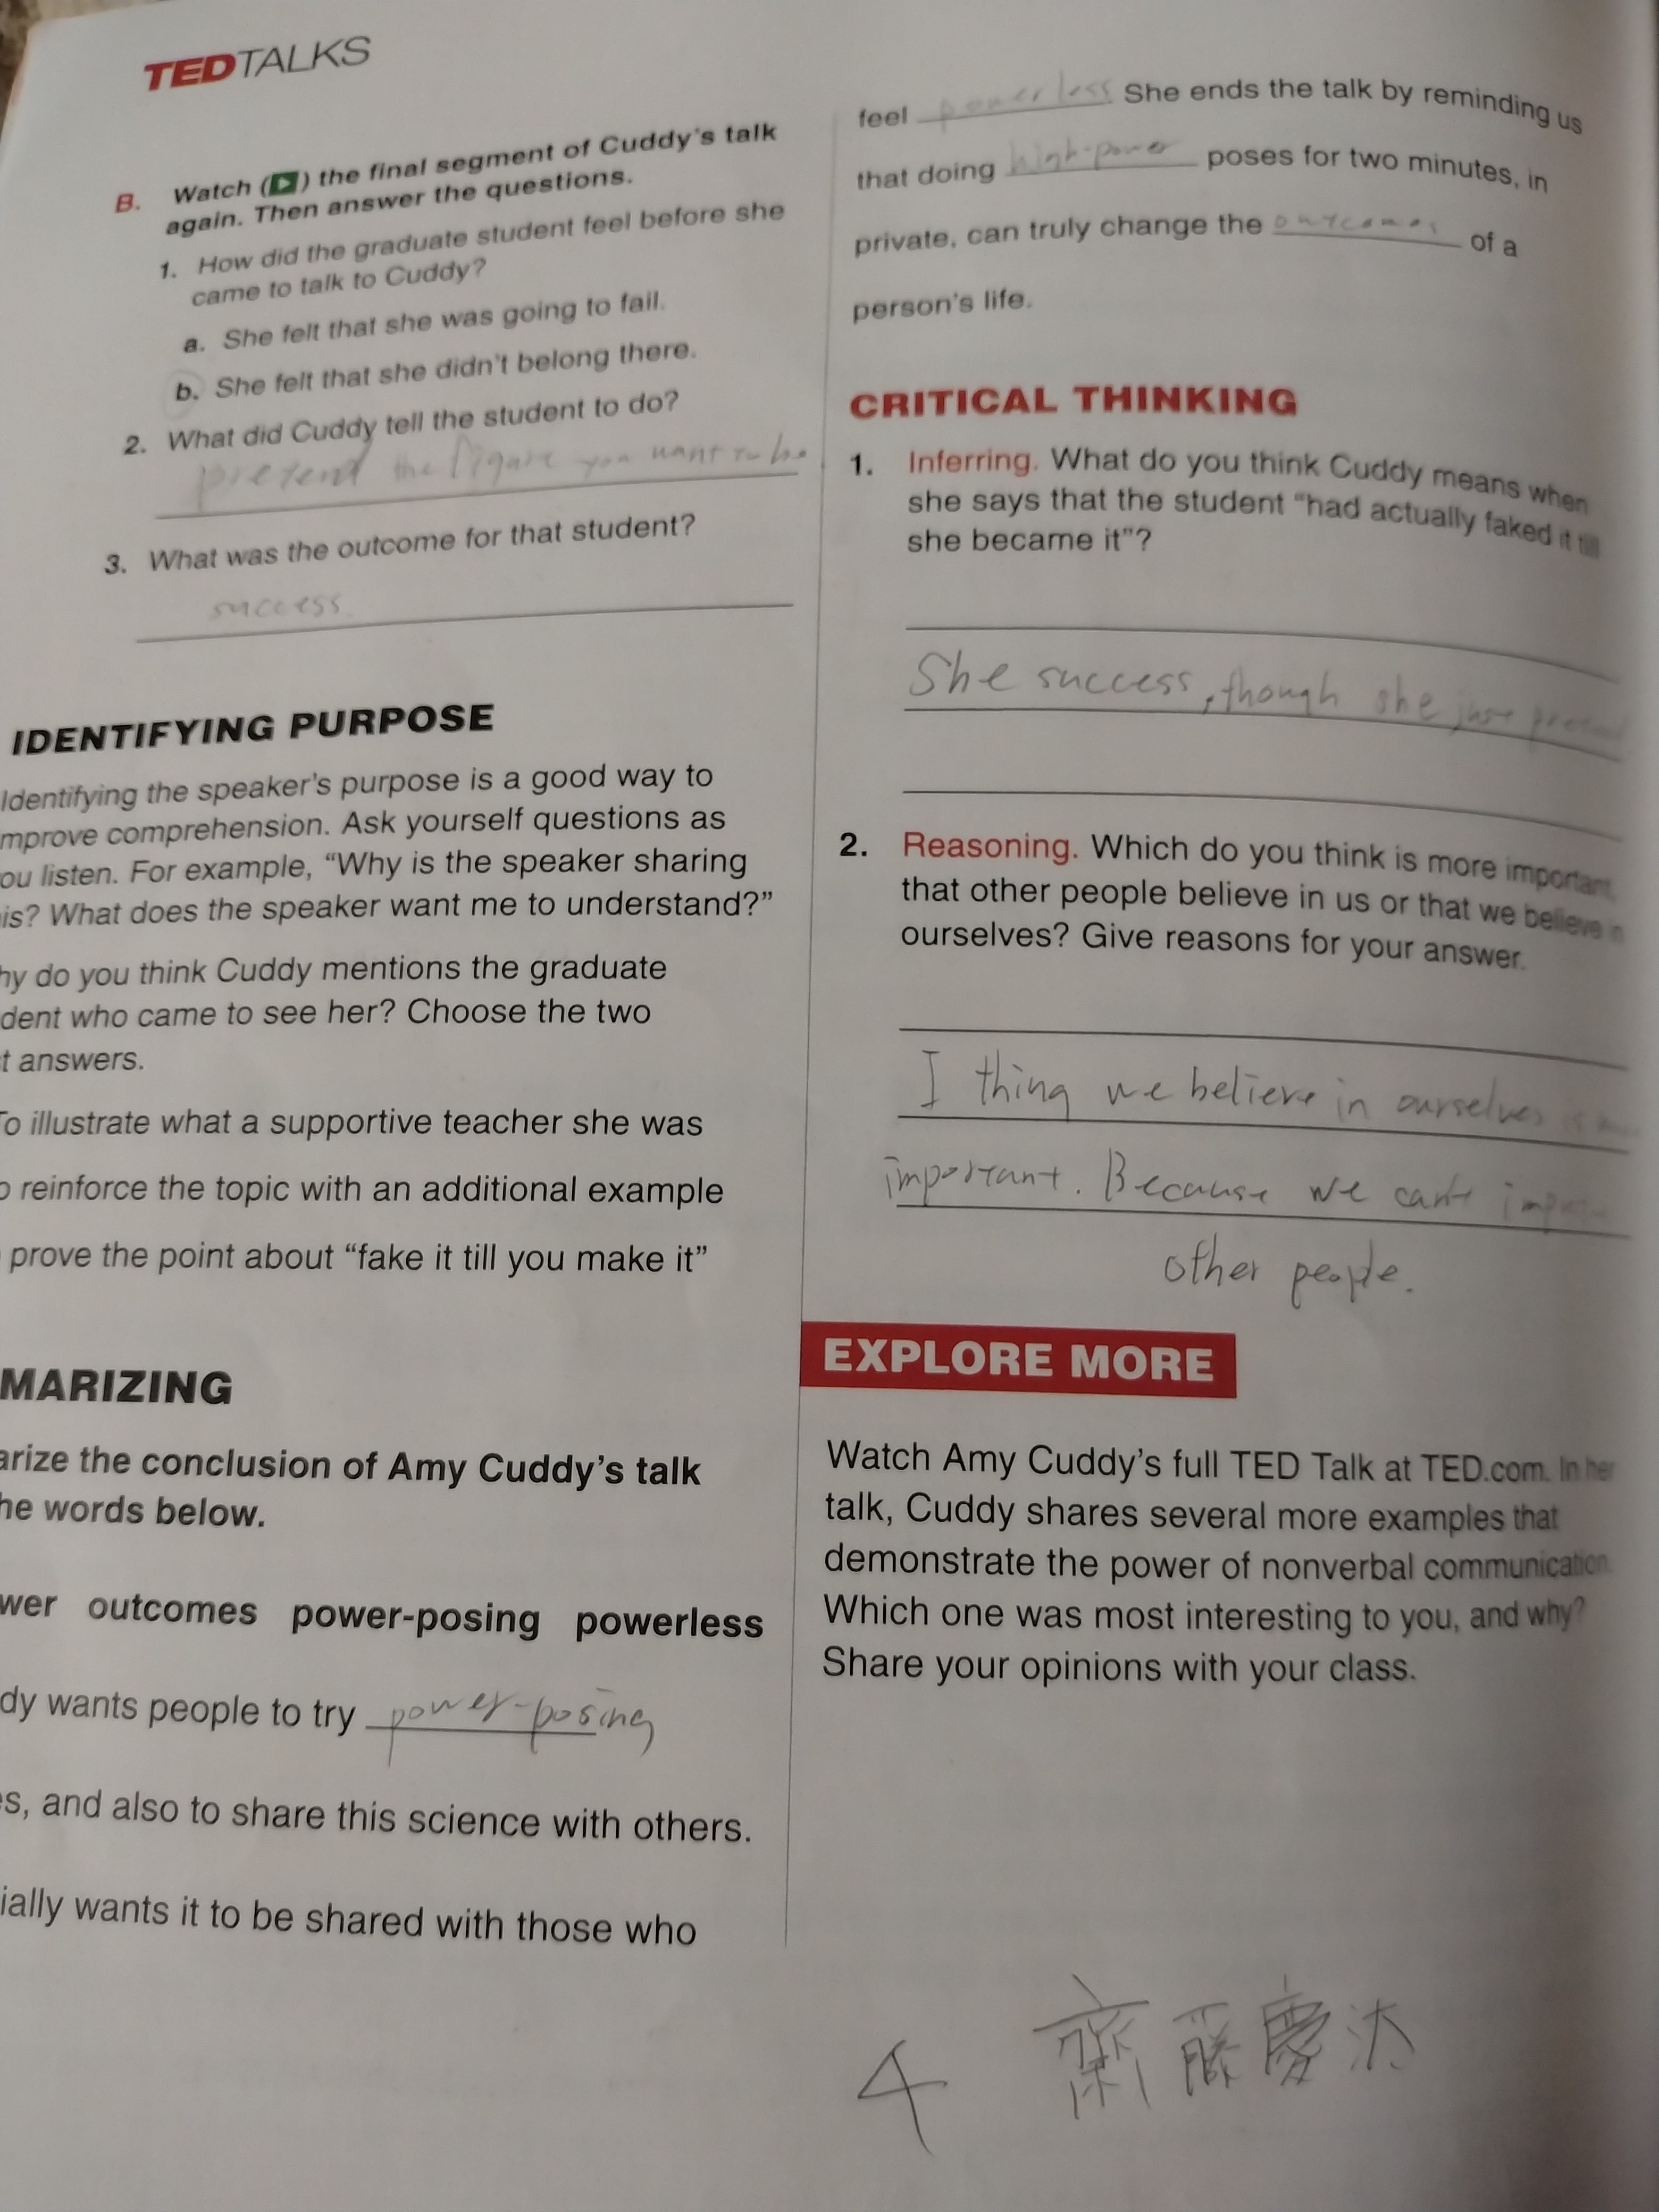 TEDTALKS
B. Watch ( ) the final segment of Cuddy's talk
again. Then answer the questions.
1. How did the graduate student feel before she
came to talk to Cuddy?
a. She felt that she was going to fail.
b. She felt that she didn't belong there.
2. What did Cuddy tell the student to do?
pretend the figure you want to be
3. What was the outcome for that student?
success
IDENTIFYING PURPOSE
Identifying the speaker's purpose is a good way to
mprove comprehension. Ask yourself questions as
ou listen. For example, "Why is the speaker sharing
is? What does the speaker want me to understand?"
hy do you think Cuddy mentions the graduate
dent who came to see her? Choose the two
t answers.
To illustrate what a supportive teacher she was
o reinforce the topic with an additional example
prove the point about "fake it till you make it"
MARIZING
arize the conclusion of Amy Cuddy's talk
he words below.
wer outcomes power-posing powerless
dy wants people to try power-posing
es, and also to share this science with others.
ially wants it to be shared with those who
feel powerless She ends the talk by reminding us
that doing high-power poses for two minutes, in
private, can truly change the outcomes of a
person's life.
CRITICAL THINKING
1. Inferring. What do you think Cuddy means when
she says that the student "had actually faked it till
she became it"?
She success, though she just pretend
2. Reasoning. Which do you think is more important,
that other people believe in us or that we believe in
ourselves? Give reasons for your answer.
I thing we believe in ourselves is
important. Because we can't
other people.
EXPLORE MORE
Watch Amy Cuddy's full TED Talk at TED.com. In her
talk, Cuddy shares several more examples that
demonstrate the power of nonverbal communication.
Which one was most interesting to you, and why?
Share your opinions with your class.
4 齋藤慶汰